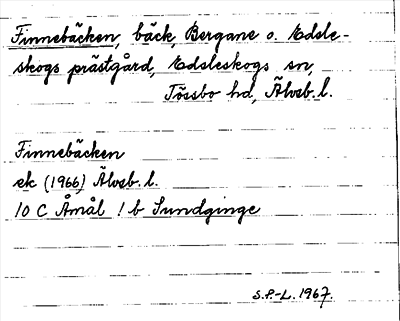 Finnebäcken, bäck, Bergane o. Edsle-
skogs prästgård, Edsleskogs sn,
Tössbo hd, Älvsb. l.
Finnebäcken
ek (1966) Älvsb. l.
10 C Åmål 1 b Sundginge
S.P.-L. 1967.